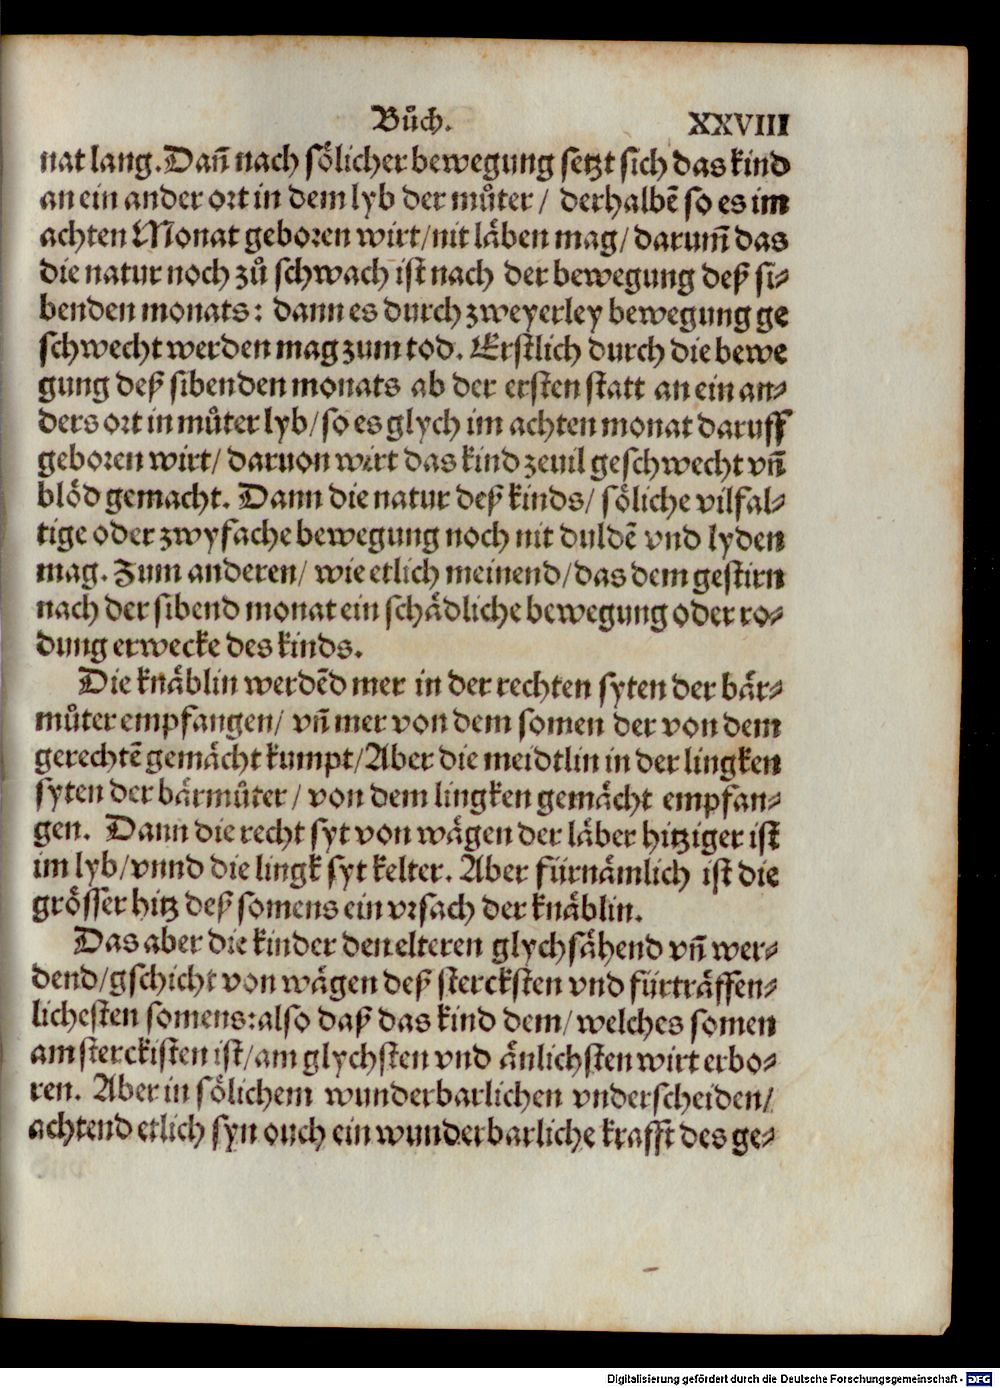 Bůch. XXVIII
nat lang. Dañ nach sölicher bewegung setzt sich das kind
an ein ander ort in dem lyb der můter / derhalbẽ so es im
achten Monat geboren wirt/nit läben mag/darum̃ das
die natur noch zů schwach ist nach der bewegung deß si-
benden monats: dann es durch zweyerley bewegung ge
schwecht werden mag zum tod. Erstlich durch die bewe
gung deß sibenden monats ab der ersten statt an ein an-
ders ort in můter lyb/so es glych im achten monat daruff
geboren wirt/ daruon wirt das kind zeuil geschwecht vñ
blöd gemacht. Dann die natur deß kinds/ söliche vilfal-
tige oder zwyfache bewegung noch nit duldẽ vnd lyden
mag. Zum anderen/ wie etlich meinend/das dem gestirn
nach der sibend monat ein schädliche bewegung oder ro-
dung erwecke des kinds.
Die knäblin werdẽd mer in der rechten syten der bär-
můter empfangen/ vñ mer von dem somen der von dem
gerechtẽ gemächt kumpt/Aber die meidtlin in der lingken
syten der bärmůter / von dem lingken gemächt empfan-
gen. Dann die recht syt von wägen der läber hitziger ist
im lyb/vnnd die lingk syt kelter. Aber fürnämlich ist die
grösser hitz deß somens ein vrsach der knäblin.
Das aber die kinder den elteren glych sähend vñ wer-
dend/gschicht von wägen deß stercksten vnd fürträffen-
lichesten somens:also daß das kind dem/welches somen
am sterckisten ist/am glychsten vnd änlichsten wirt erbo-
ren. Aber in sölichem wunderbarlichen vnderscheiden/
achtend etlich syn ouch ein wunderbarliche krafft des ge-
Digitalisierung gefördert durch die Deutsche Forschungsgemeinschaft - DFG